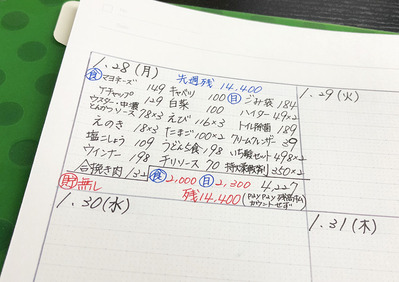 1.28(月) 先週残 14,400
食 マヨネーズ 149 キャベツ 100 日 ごみ袋 184
ケチャップ 129 白菜 100 ハイター 49×2
ウスター・中濃 とんかつソース 78×3 えび 116×3 トイレ除菌 189
えのき 18×3 たまご 100×2 クリームクレンザー 39
塩こしょう 109 うどん5食 198 いち髪セット 498×2
ウインナー 198 チリソース 70 350×2
合挽き肉 132 食 2,000 日 2,300 4,227
貯 無し 残 14,400 (PayPay残高内 カウントせず)
1.29(火)
1.30(水)
1.31(木)